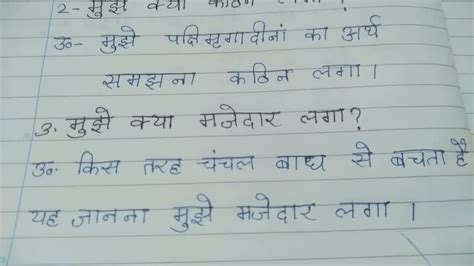 2- मुझे क्या कठिन लगा?
उ०- मुझे पक्षिमृगादीनां का अर्थ
समझना कठिन लगा।
3. मुझे क्या मजेदार लगा?
उ०. किस तरह चंचल बाघ से बचता है
यह जानना मुझे मजेदार लगा।